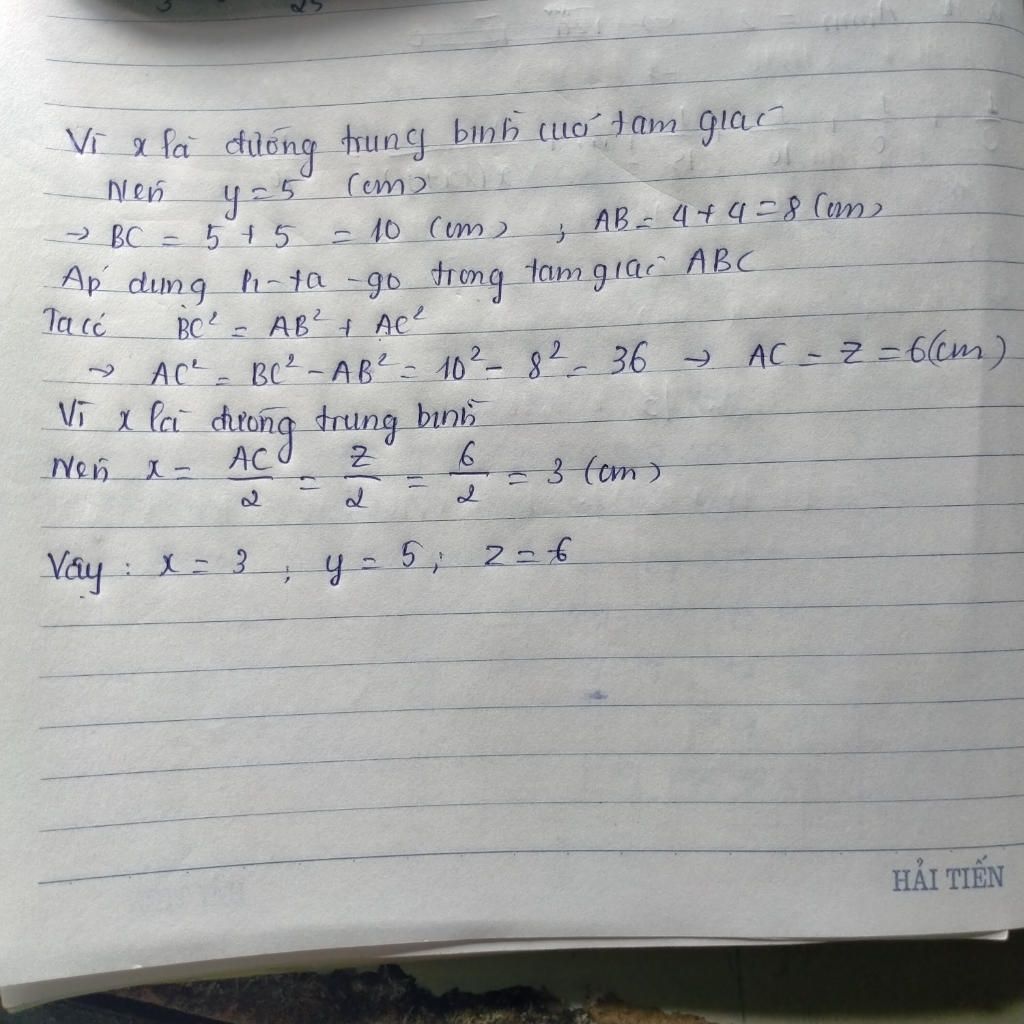 3 25
Vì x là đường trung bình của tam giác
Nên y = 5 (cm)
→ BC = 5 + 5 = 10 (cm) ; AB = 4 + 4 = 8 (cm)
Áp dụng Pi-ta-go trong tam giác ABC
Ta có BC² = AB² + AC²
→ AC² = BC² - AB² = 10² - 8² = 36 → AC = z = 6(cm)
Vì x là đường trung bình
Nên x = AC/2 = z/2 = 6/2 = 3 (cm)
Vậy : x = 3 ; y = 5 ; z = 6
HẢI TIẾN